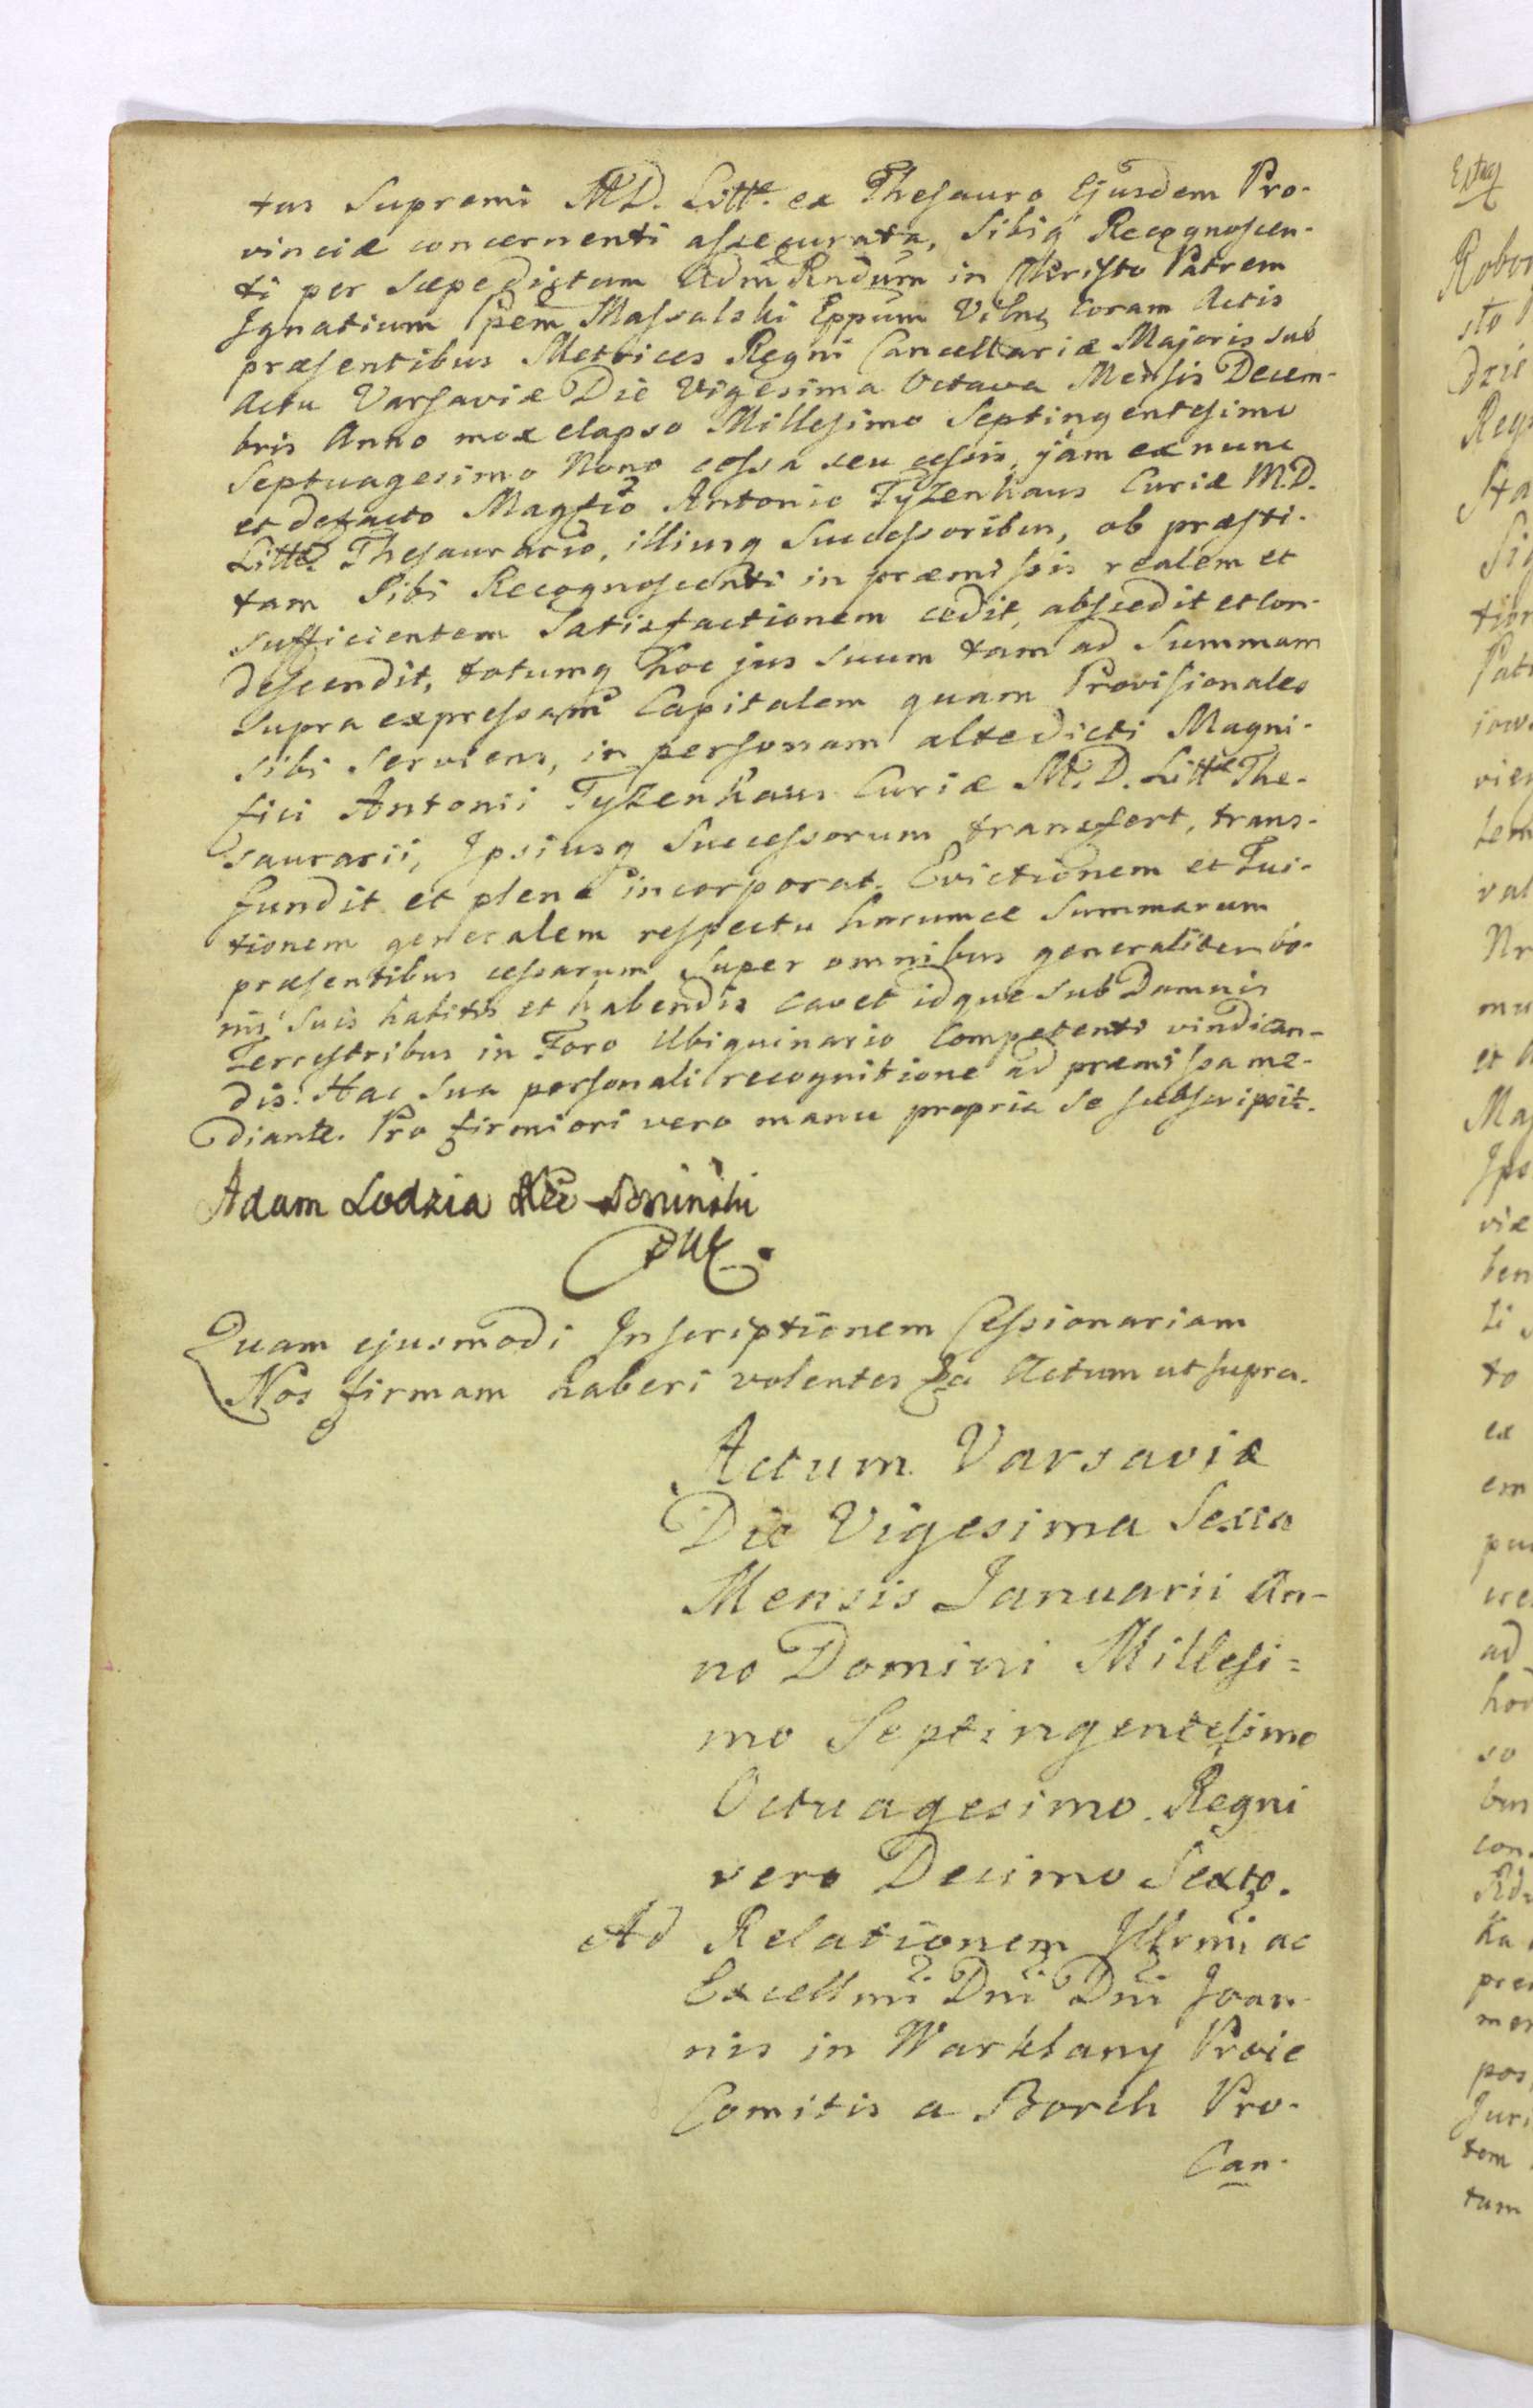 tus Supremi M.D. Littæ. ex Thesauro Ejusdem Pro-
vinciæ concernenti assecurata, Sibiq Recognoscen-
ti per sæpedictum Adm̃ Rndum in Christo Patrem
Ignatium Ppem̃ Massalski Eppum Vilnę Coram Actis
præsentibus Metrices Regni Cancellariæ Majoris sub
Actu Varsaviæ Die Vigesima Octava Mensis Decem-
bris Anno mox elapso Millesimo Septingentesimo
Septuagesimo Nono cessa seu cessis, jam ex nunc
et defacto Magfco Antonio Tyzenhaus Curiæ M.D.
Littæ. Thesaurario, illiusq Successoribus, ob præsti-
tam Sibi Recognoscenti in præmissis realem et
sufficientem Satisfactionem cedit, abscedit et con-
descendit, totumq hoc jus suum tam ad Summam
supra expressam Capitalem quam Provisionales
sibi serviens, in personam altedicti Magni-
fici Antonii Tyzenhaus Curiæ M.D. Littæ The-
saurarii, Ipsiusq Successorum transfert, trans-
fundit et plene incorporat. Evictionem et Tui-
tionem generalem respectu harumce Summarum
præsentibus cessarum Super omnibus generaliter bo-
nis suis habitis et habendis cavet idque sub Damnis
Terrestribus in Foro Ubiquinario Competenti vindican-
dis. Hac Sua personali recognitione ad præmissa me-
diante. Pro firmiori vero manu propria se subscripsit.
Adam Lodzia Xże Poninski
PWK.
Quam ejusmodi Inscriptionem Cessionariam
Nos firmam haberi volentes Actum ut supra.
Actum Varsaviæ
Die Vigesima Sexta
Mensis Januarii An-
no Domini Millesi=
mo Septingentesimo
Octuagesimo. Regni
vero Decimo Sexto.
Ad Relationem Illrmi ac
Excellmi Dni Dni Joan-
nis in Warklany
Comitis a Borch Pro-
Can-